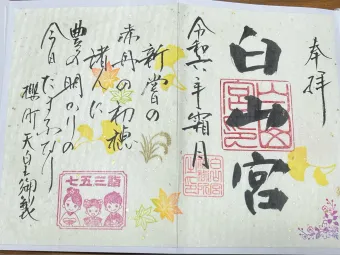 奉拝
白山宮
令和 年霜月
新嘗の
赤丹の初穂
諸人に
豊の明かりの
今日たまふなり
櫻町天皇御製
七五三詣